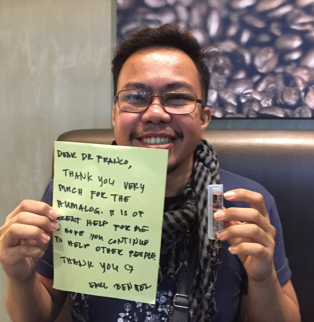 DEAR DR FRANCO,
THANK YOU VERY
MUCH FOR THE
HUMALOG. IT IS OF
GREAT HELP FOR ME.
I HOPE YOU CONTINUE
TO HELP OTHER PEOPLE.
THANK YOU
EARL